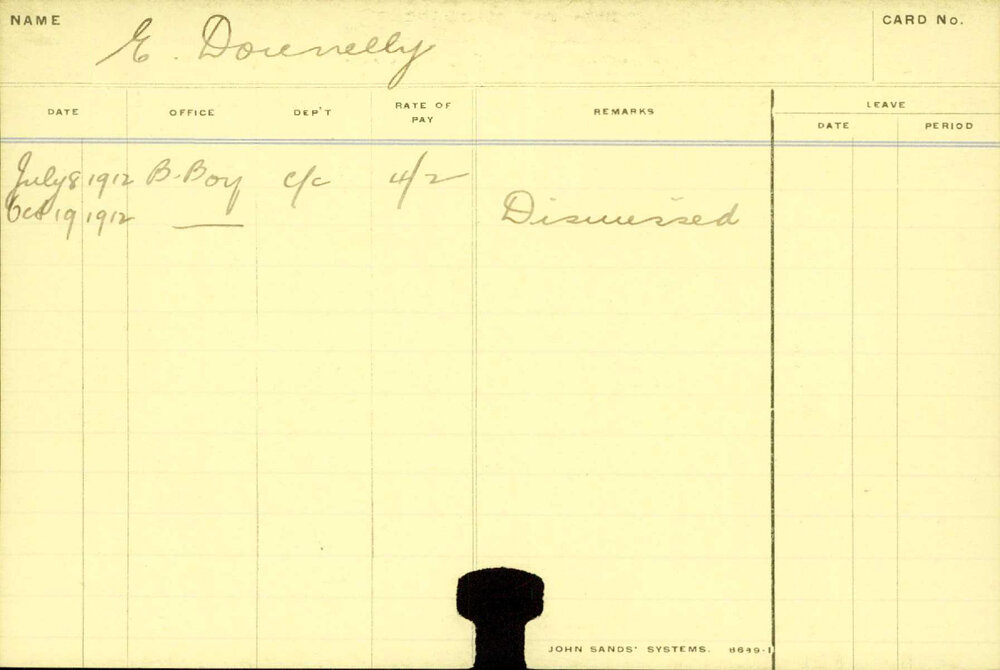 NAME E. Donnelly CARD No.
DATE OFFICE DEP'T RATE OF PAY REMARKS LEAVE
DATE PERIOD
July 8 1912 B. Boy c/c 4/2
Oct 19 1912 — Dismissed
JOHN SANDS' SYSTEMS. 8689-1